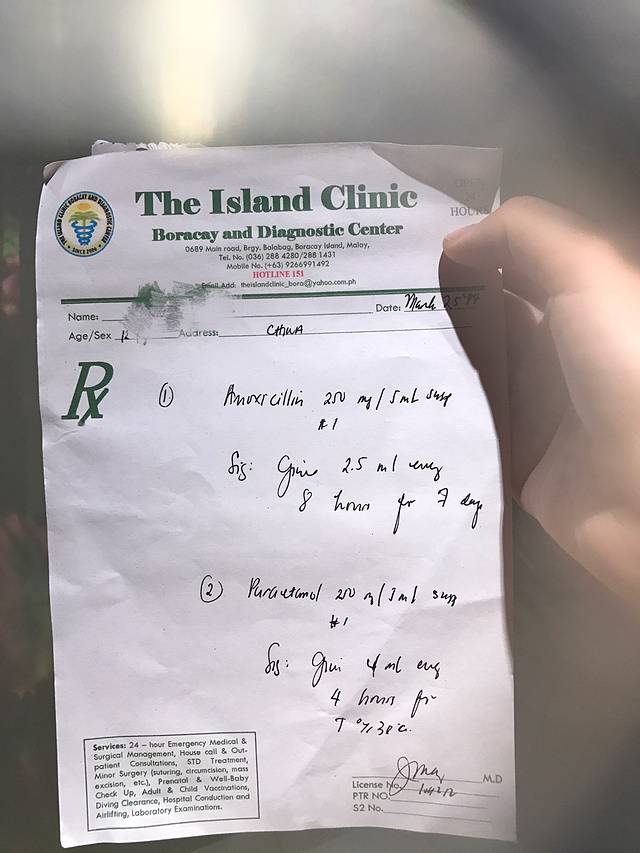 OPEN
HOURS
The Island Clinic
Boracay and Diagnostic Center
0689 Main road, Brgy. Balabag, Boracay Island, Malay,
Tel. No. (036) 288 4280/288 1431
Mobile No. (+63) 9266991492
HOTLINE 151
Email Add: theislandclinic_bora@yahoo.com.ph
THE ISLAND CLINIC BORACAY AND DIAGNOSTIC CENTER
SINCE 2006
Name: Date: March 25
Age/Sex 12 Address: CHINA
Rx
① Amoxicillin 250 mg/5mL susp
#1
Sig: Give 2.5 ml every
8 hours for 7 days
② Paracetamol 250 mg/5mL susp
#1
Sig: Give 4 ml every
4 hours for
Services: 24 – hour Emergency Medical &
Surgical Management, House call & Out-
patient Consultations, STD Treatment,
Minor Surgery (suturing, circumcision, mass
excision, etc.), Prenatal & Well-Baby
Check Up, Adult & Child Vaccinations,
Diving Clearance, Hospital Conduction and
Airlifting, Laboratory Examinations.
M.D
License No.
PTR NO.
S2 No.